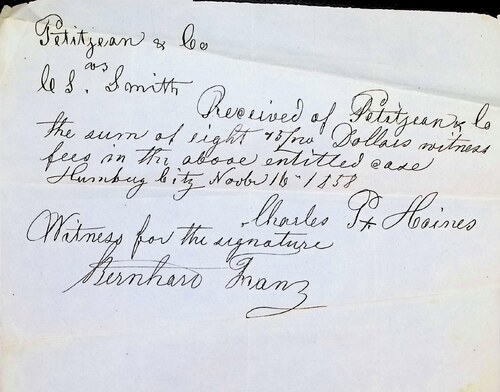 Petitjean & Co
vs
C S. Smith
Received of Petitjean & Co
the sum of eight 75/100 Dollars witness
fees in the above entitled case
Humbug City Novbr 16th 1858
Charles P x Haines
Witness for the signature
Bernhard Franz